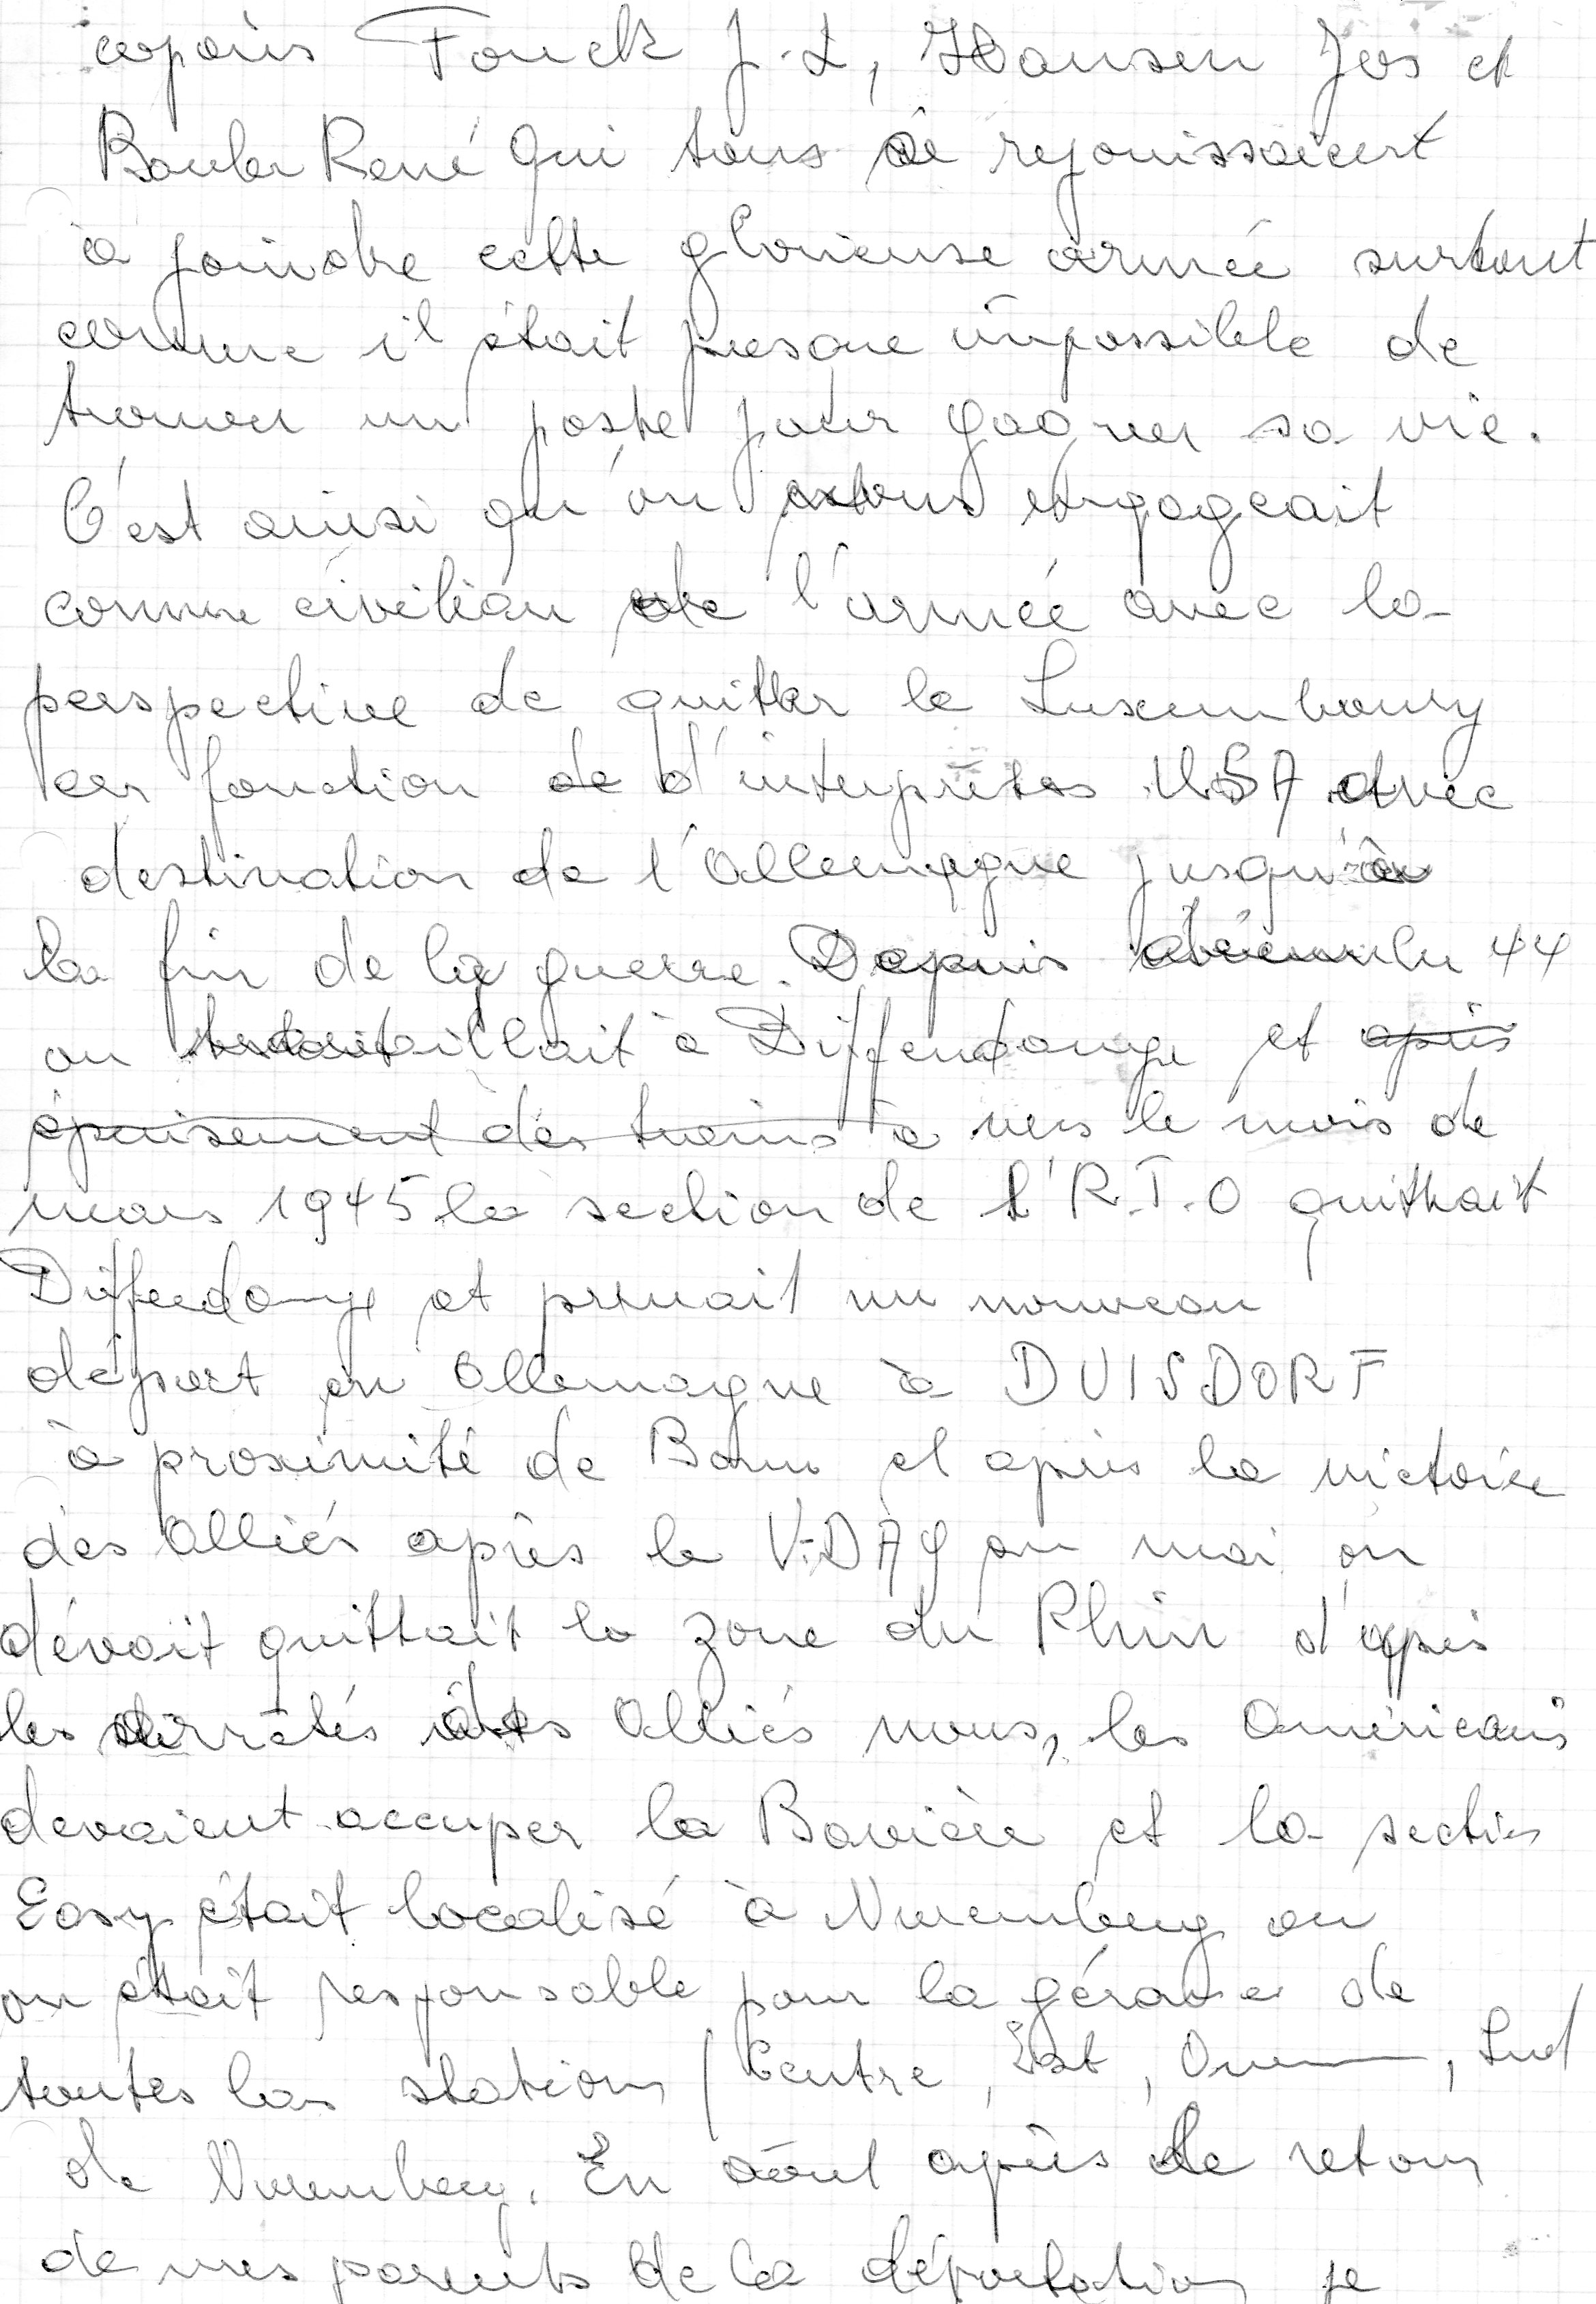 copains Fonck J.L, Hansen Jos et
Bouler René qui tous se rejouissaient
à joindre cette glorieuse armée surtout
comme il était presque impossible de
trouver un poste pour gagner sa vie.
C'est ainsi qu'on engageait
comme civilian de l'armée avec la
perspective de quitter le Luxembourg
en fonction de d'interprètes USA avec
destination de l'Allemagne jusqu'à
la fin de la guerre. Depuis décembre 44
on travaillait à Differdange et après
épuisement des trains à vers le mois de
mars 1945 la section de l'R.T.O quittait
Differdange et prenait un nouveau
départ en Allemagne à DUISDORF
à proximité de Bonn et après la victoire
des Alliés après le V-DAY en mai on
dévait quittait la zone du Rhin d'après
les arrêtés des Alliés nous, les Américains
devaient occuper la Bavière et la section
Easy était localisé à Nuremberg ou
on était responsable pour la gérance de
toutes les stations (Centre, Est, Ouest, Sud
de Nuremberg. En août après le retour
de mes parents de la déportation je